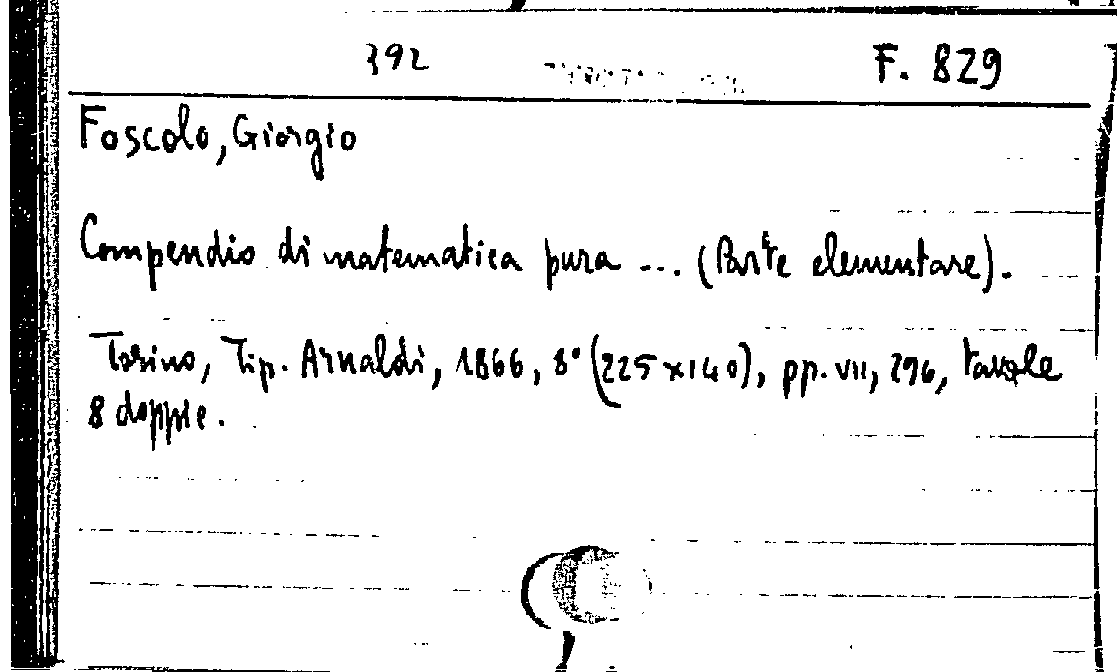 392 F. 829
Foscolo, Giorgio
Compendio di matematica pura ... (Parte elementare).
Torino, Tip. Arnaldi, 1866, 8° (225×140), pp. VII, 296, tavole
8 doppie.